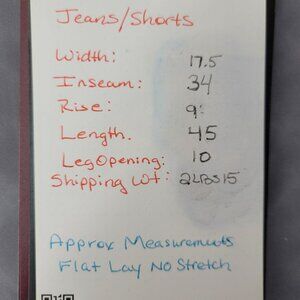 Jeans/Shorts
Width: 17.5
Inseam: 34
Rise: 9
Length. 45
Leg Opening: 10
Shipping Wt: 2Lbs15
Approx Measurements
Flat Lay No Stretch